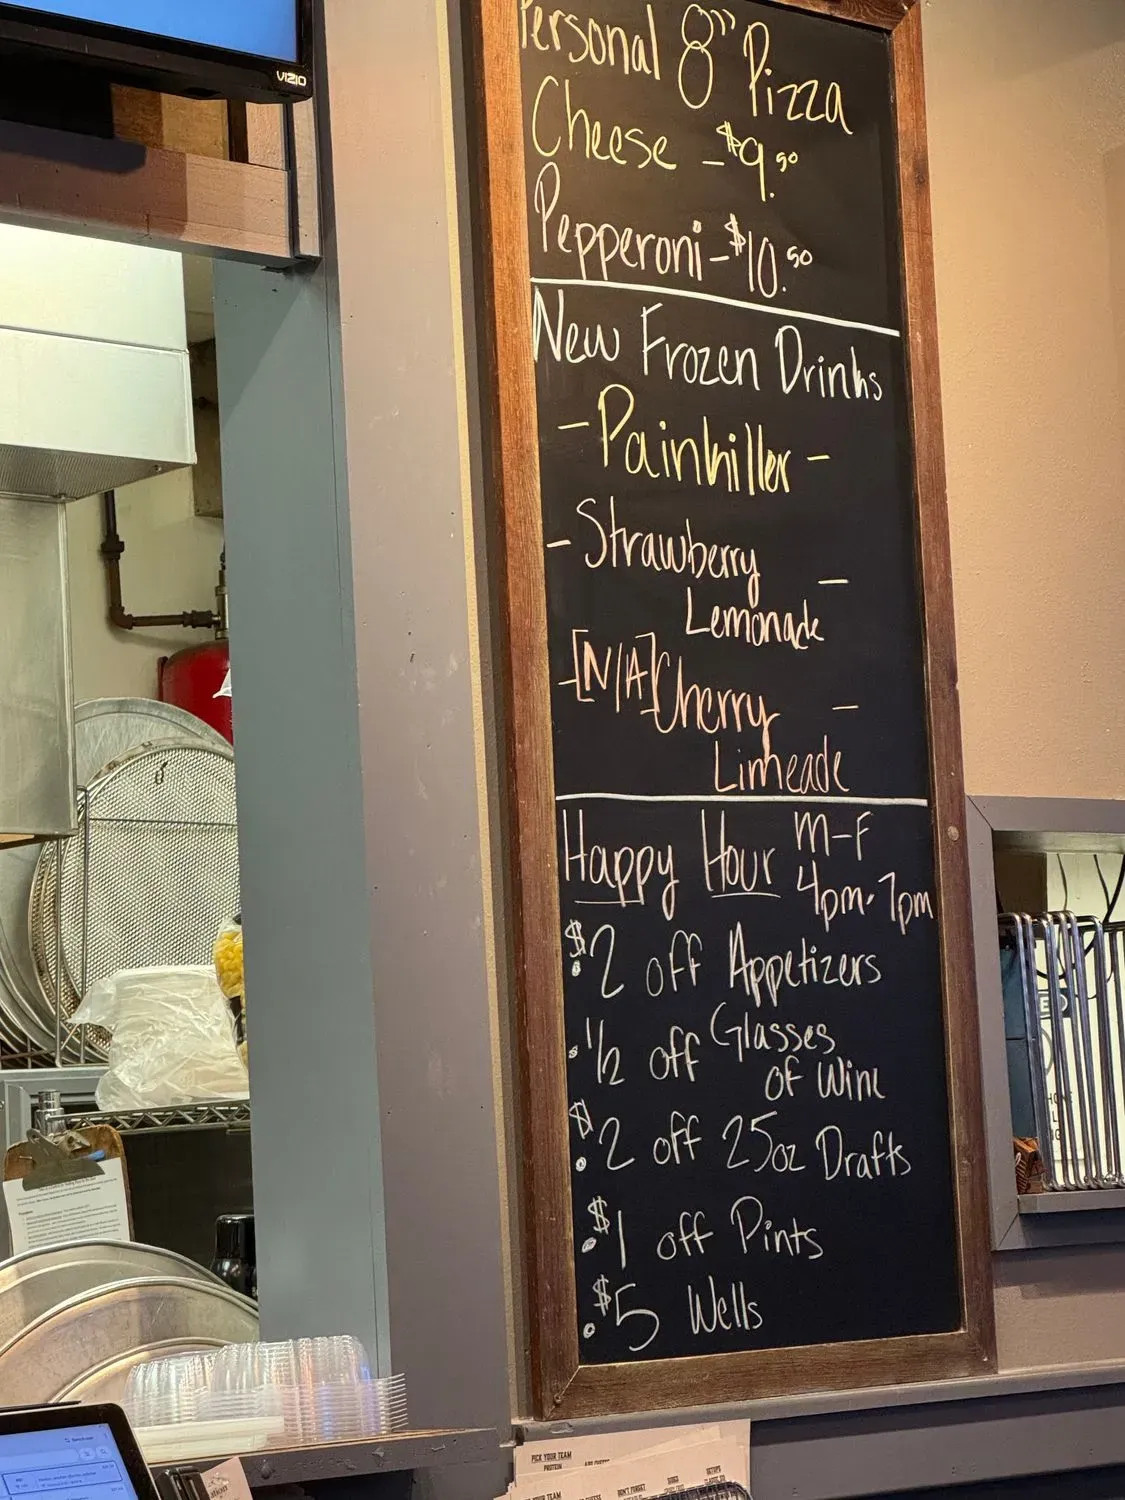 VIZIO
Personal 8" Pizza
Cheese - $9.50
Pepperoni - $10.50
New Frozen Drinks
- Painkiller -
- Strawberry -
Lemonade
- [N/A] Cherry -
Limeade
Happy Hour M-F
4pm-7pm
$2 off Appetizers
1/2 off Glasses
of Wine
$2 off 25oz Drafts
$1 off Pints
$5 Wells
PICK YOUR TEAM
PROTEIN
DON'T FORGET